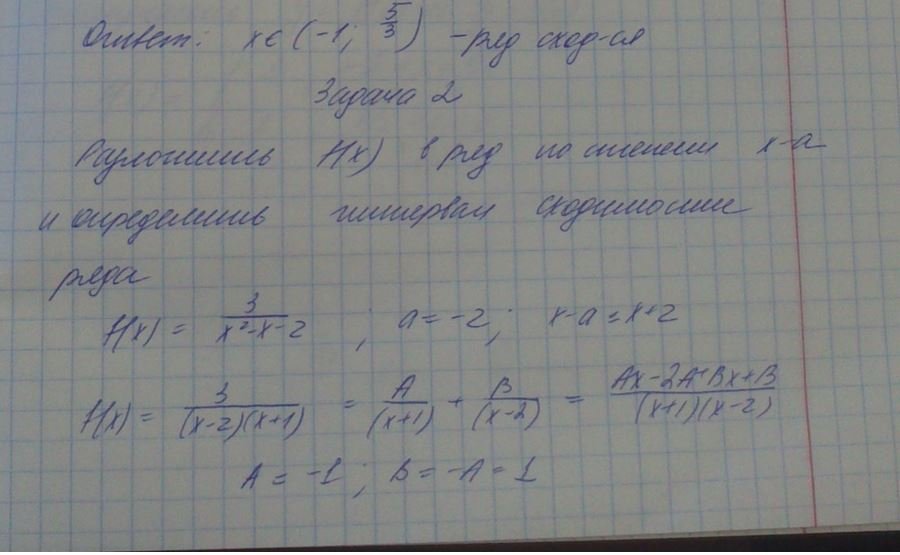 Ответ: x ∈ (-1; 5/3) - ряд сход-ся
Задача 2
Разложить f(x) в ряд по степени x-a
и определить интервал сходимости
ряда
f(x) = 3/(x²-x-2) ; a = -2; x-a = x+2
f(x) = 3/((x-2)(x+1)) = A/(x+1) + B/(x-2) = (Ax-2A+Bx+B)/((x+1)(x-2))
A = -1; B = -A = 1